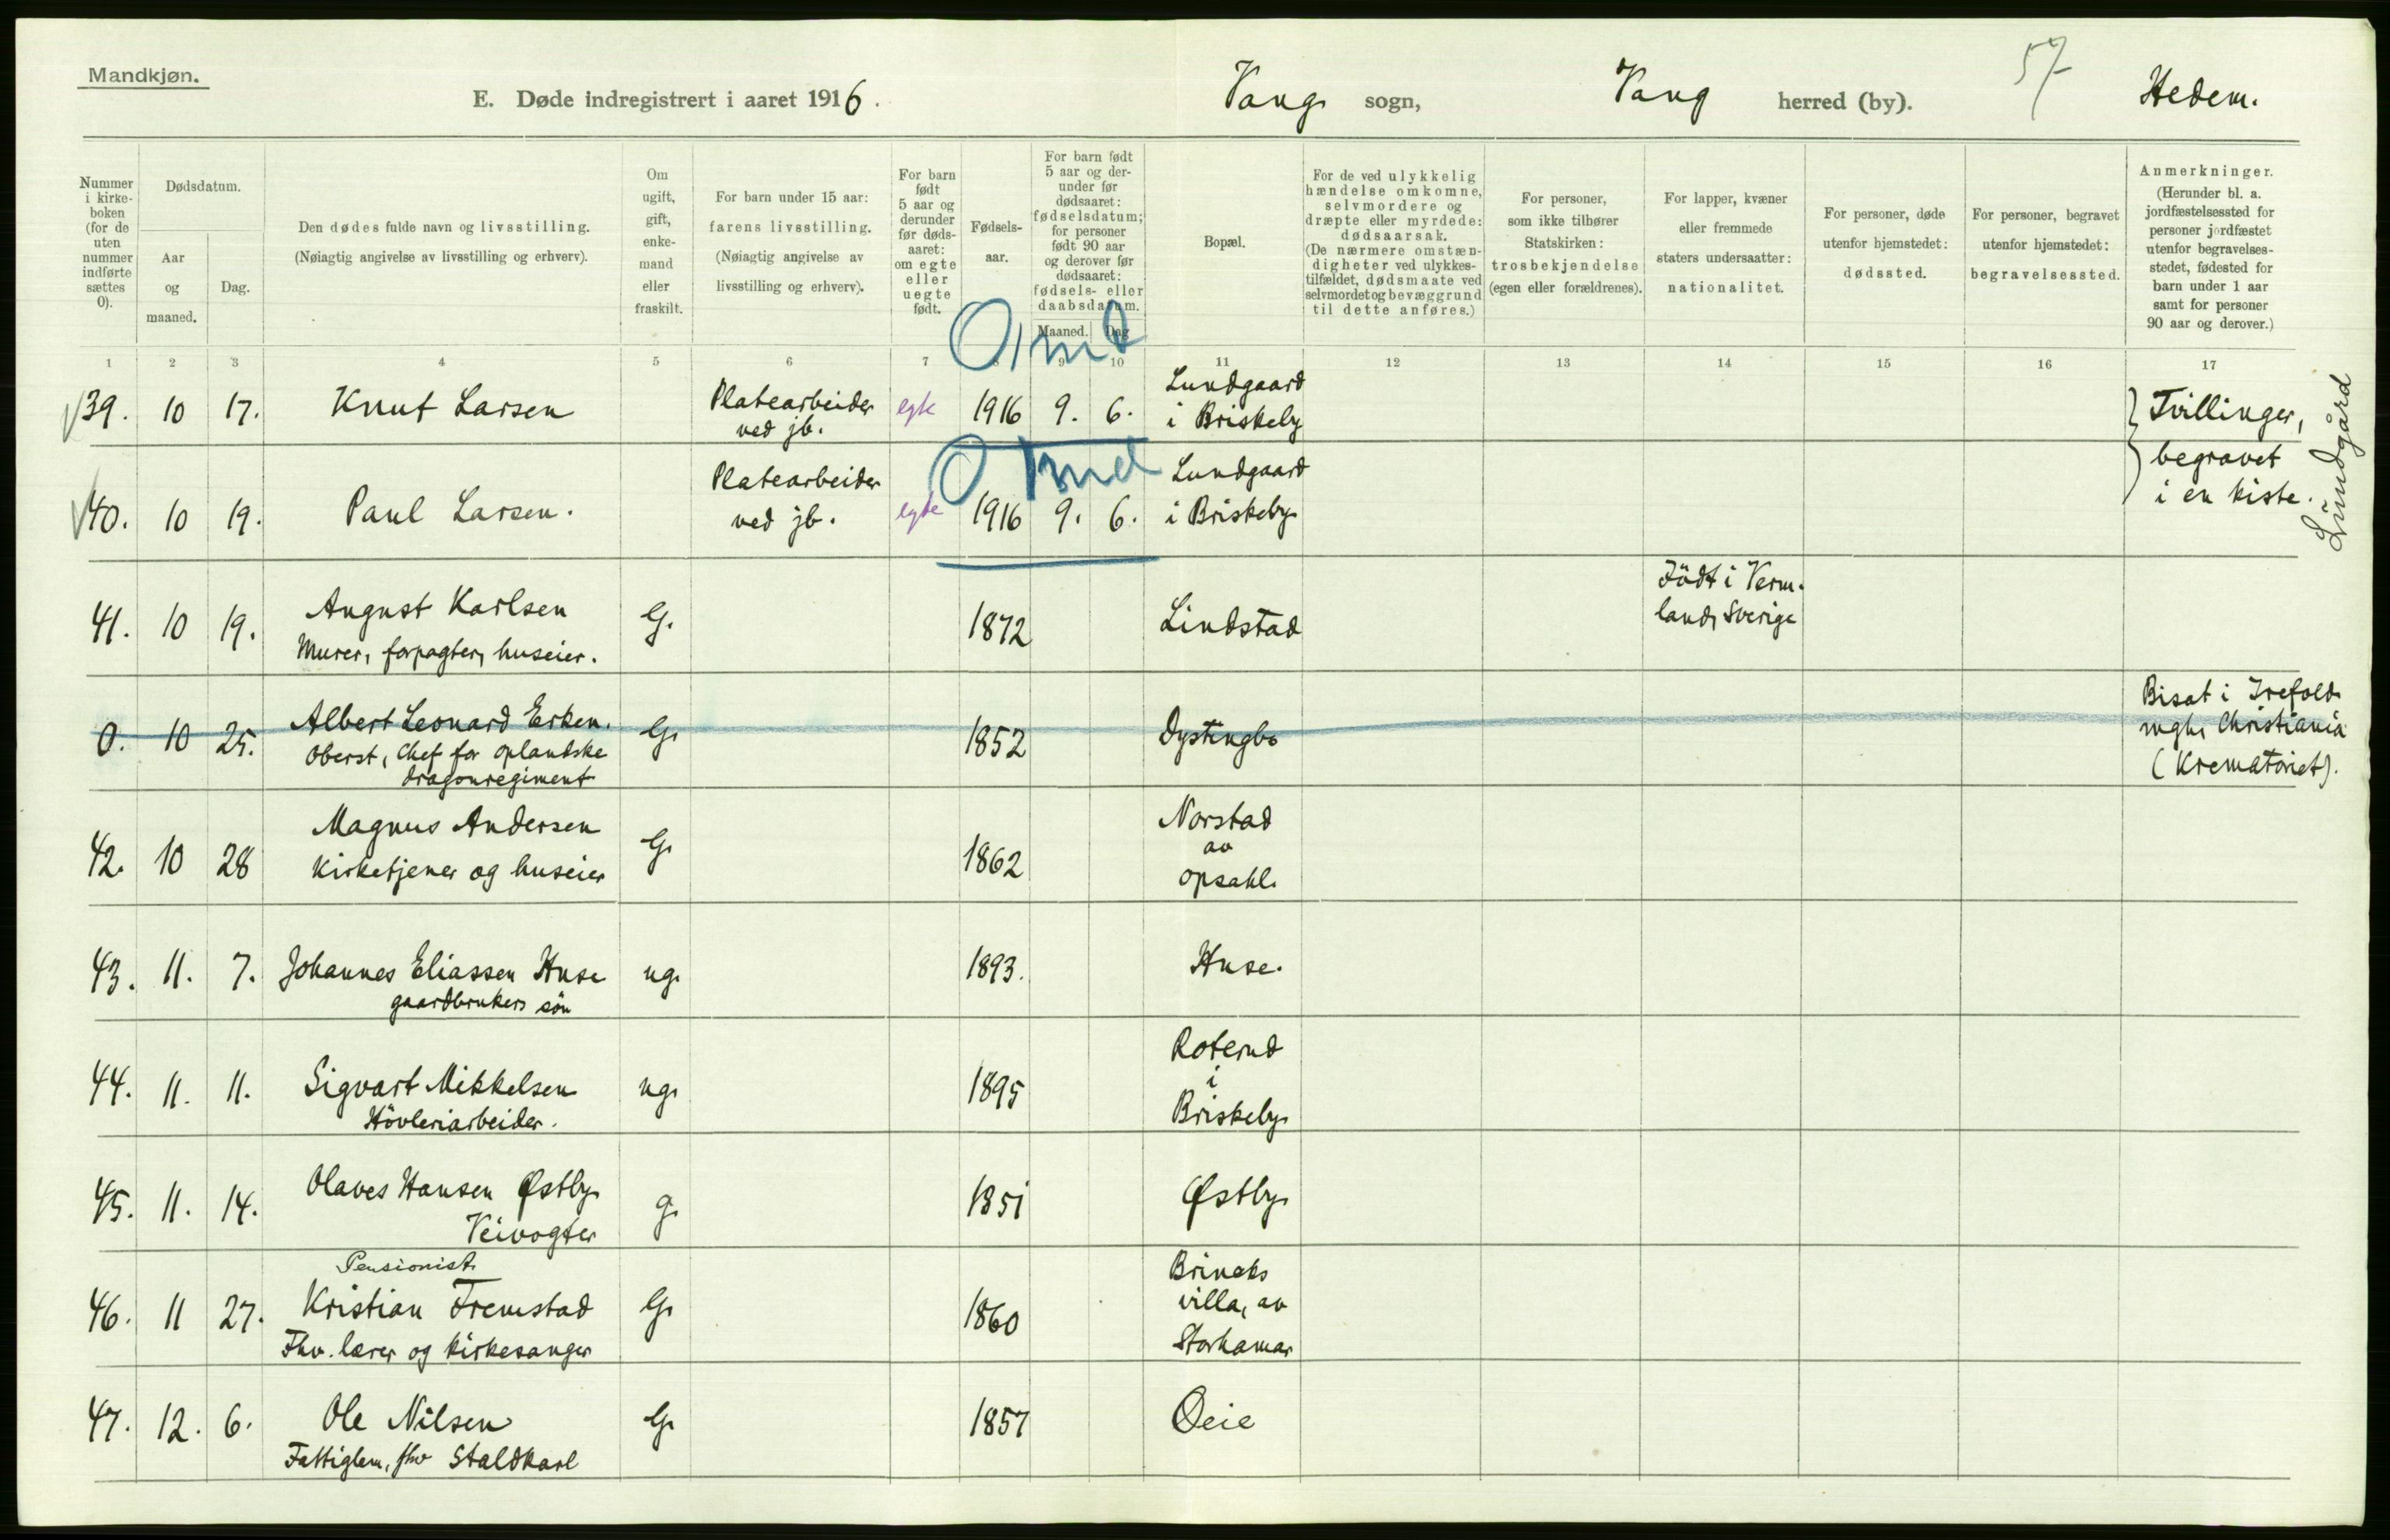 Mandkjøn.
E. Døde indregistrert i aaret 1916.
Vang sogn,
Vang herred (by).
57
Hedem.
Nummer i kirke-boken (for de uten nummer indførte sættes 0).
Dødsdatum.
Aar og maaned.
Dag.
Den dødes fulde navn og livsstilling.
(Nøiagtig angivelse av livsstilling og erhverv).
Om ugift, gift, enke-mand eller fraskilt.
For barn under 15 aar:
farens livsstilling.
(Nøiagtig angivelse av livsstilling og erhverv).
For barn født 5 aar og derunder før døds-aaret: om egte eller uegte født.
Fødsels-aar.
For barn født 5 aar og der-under før dødsaaret: fødselsdatum; for personer født 90 aar og derover før dødsaaret: fødsels- eller daabsdatum.
Maaned. Dag
Bopæl.
For de ved ulykkelig hændelse omkomne, selvmordere og dræpte eller myrdede: dødsaarsak.
(De nærmere omstæn-digheter ved ulykkes-tilfældet, dødsmaate ved selvmordet og bevæggrund til dette anføres.)
For personer, som ikke tilhører Statskirken: trosbekjendelse (egen eller forældrenes).
For lapper, kvæner eller fremmede staters undersaatter: nationalitet.
For personer, døde utenfor hjemstedet: dødssted.
For personer, begravet utenfor hjemstedet: begravelsessted.
Anmerkninger.
(Herunder bl. a. jordfæstelsessted for personer jordfæstet utenfor begravelses-stedet, fødested for barn under 1 aar samt for personer 90 aar og derover.)
1 2 3 4 5 6 7 8 9 10 11 12 13 14 15 16 17
01 md
39. 10 17. Knut Larsen Platearbeider ved jb. egte 1916 9. 6. Lundgaard i Briskeby Tvillinger,
0 1 md
40. 10 19. Paul Larsen. Platearbeider ved jb. egte 1916 9. 6. Lundgaard i Briskeby begravet i en kiste.
Lundgård
41. 10 19. August Karlsen G. 1872 Lindstad Födt i Verm-land, Sverige
Murer, forpagter, huseier.
0. 10 25. Albert Leonard Erken. G. 1852 Dystingbo Bisat i Trefold. mgh. Christiania (Krematoriet).
Oberst, Chef for oplandske dragonregiment
42. 10 28 Magnus Andersen G. 1862 Norstad av Opsahl.
Kirketjener og huseier
43. 11. 7. Johannes Eliassen Huse ug. 1893. Huse.
gaardbrukers sön
44. 11. 11. Sigvart Mikkelsen ug. 1895 Roterud i Briskeby
Hövleriarbeider.
45. 11. 14. Olaves Hansen Østby g. 1851 Østby
Veivogter
Pensionist
46. 11 27. Kristian Fremstad G. 1860 villa, av Storhamar
Fhv. lærer og kirkesanger
47. 12. 6. Ole Nilsen G. 1857 Øeie
Fattiglem, fhv Staldkarl